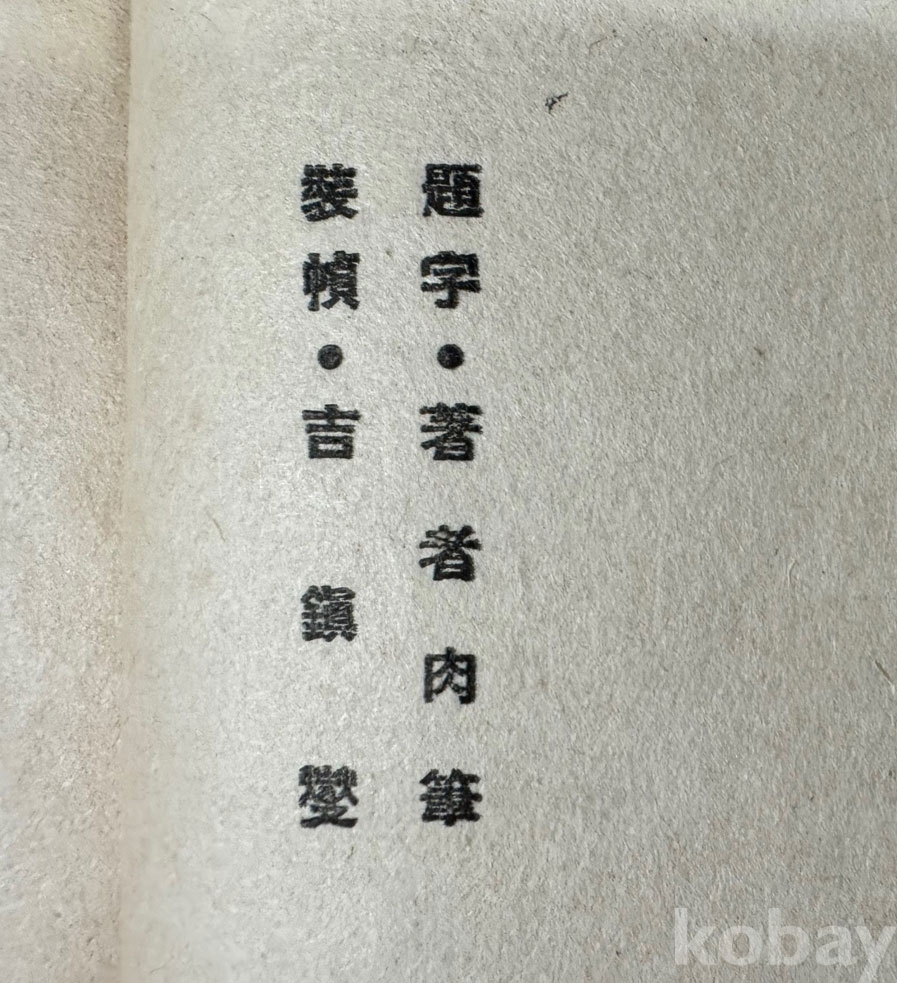 題字・著者肉筆
裝幀・吉鎭燮
kobay